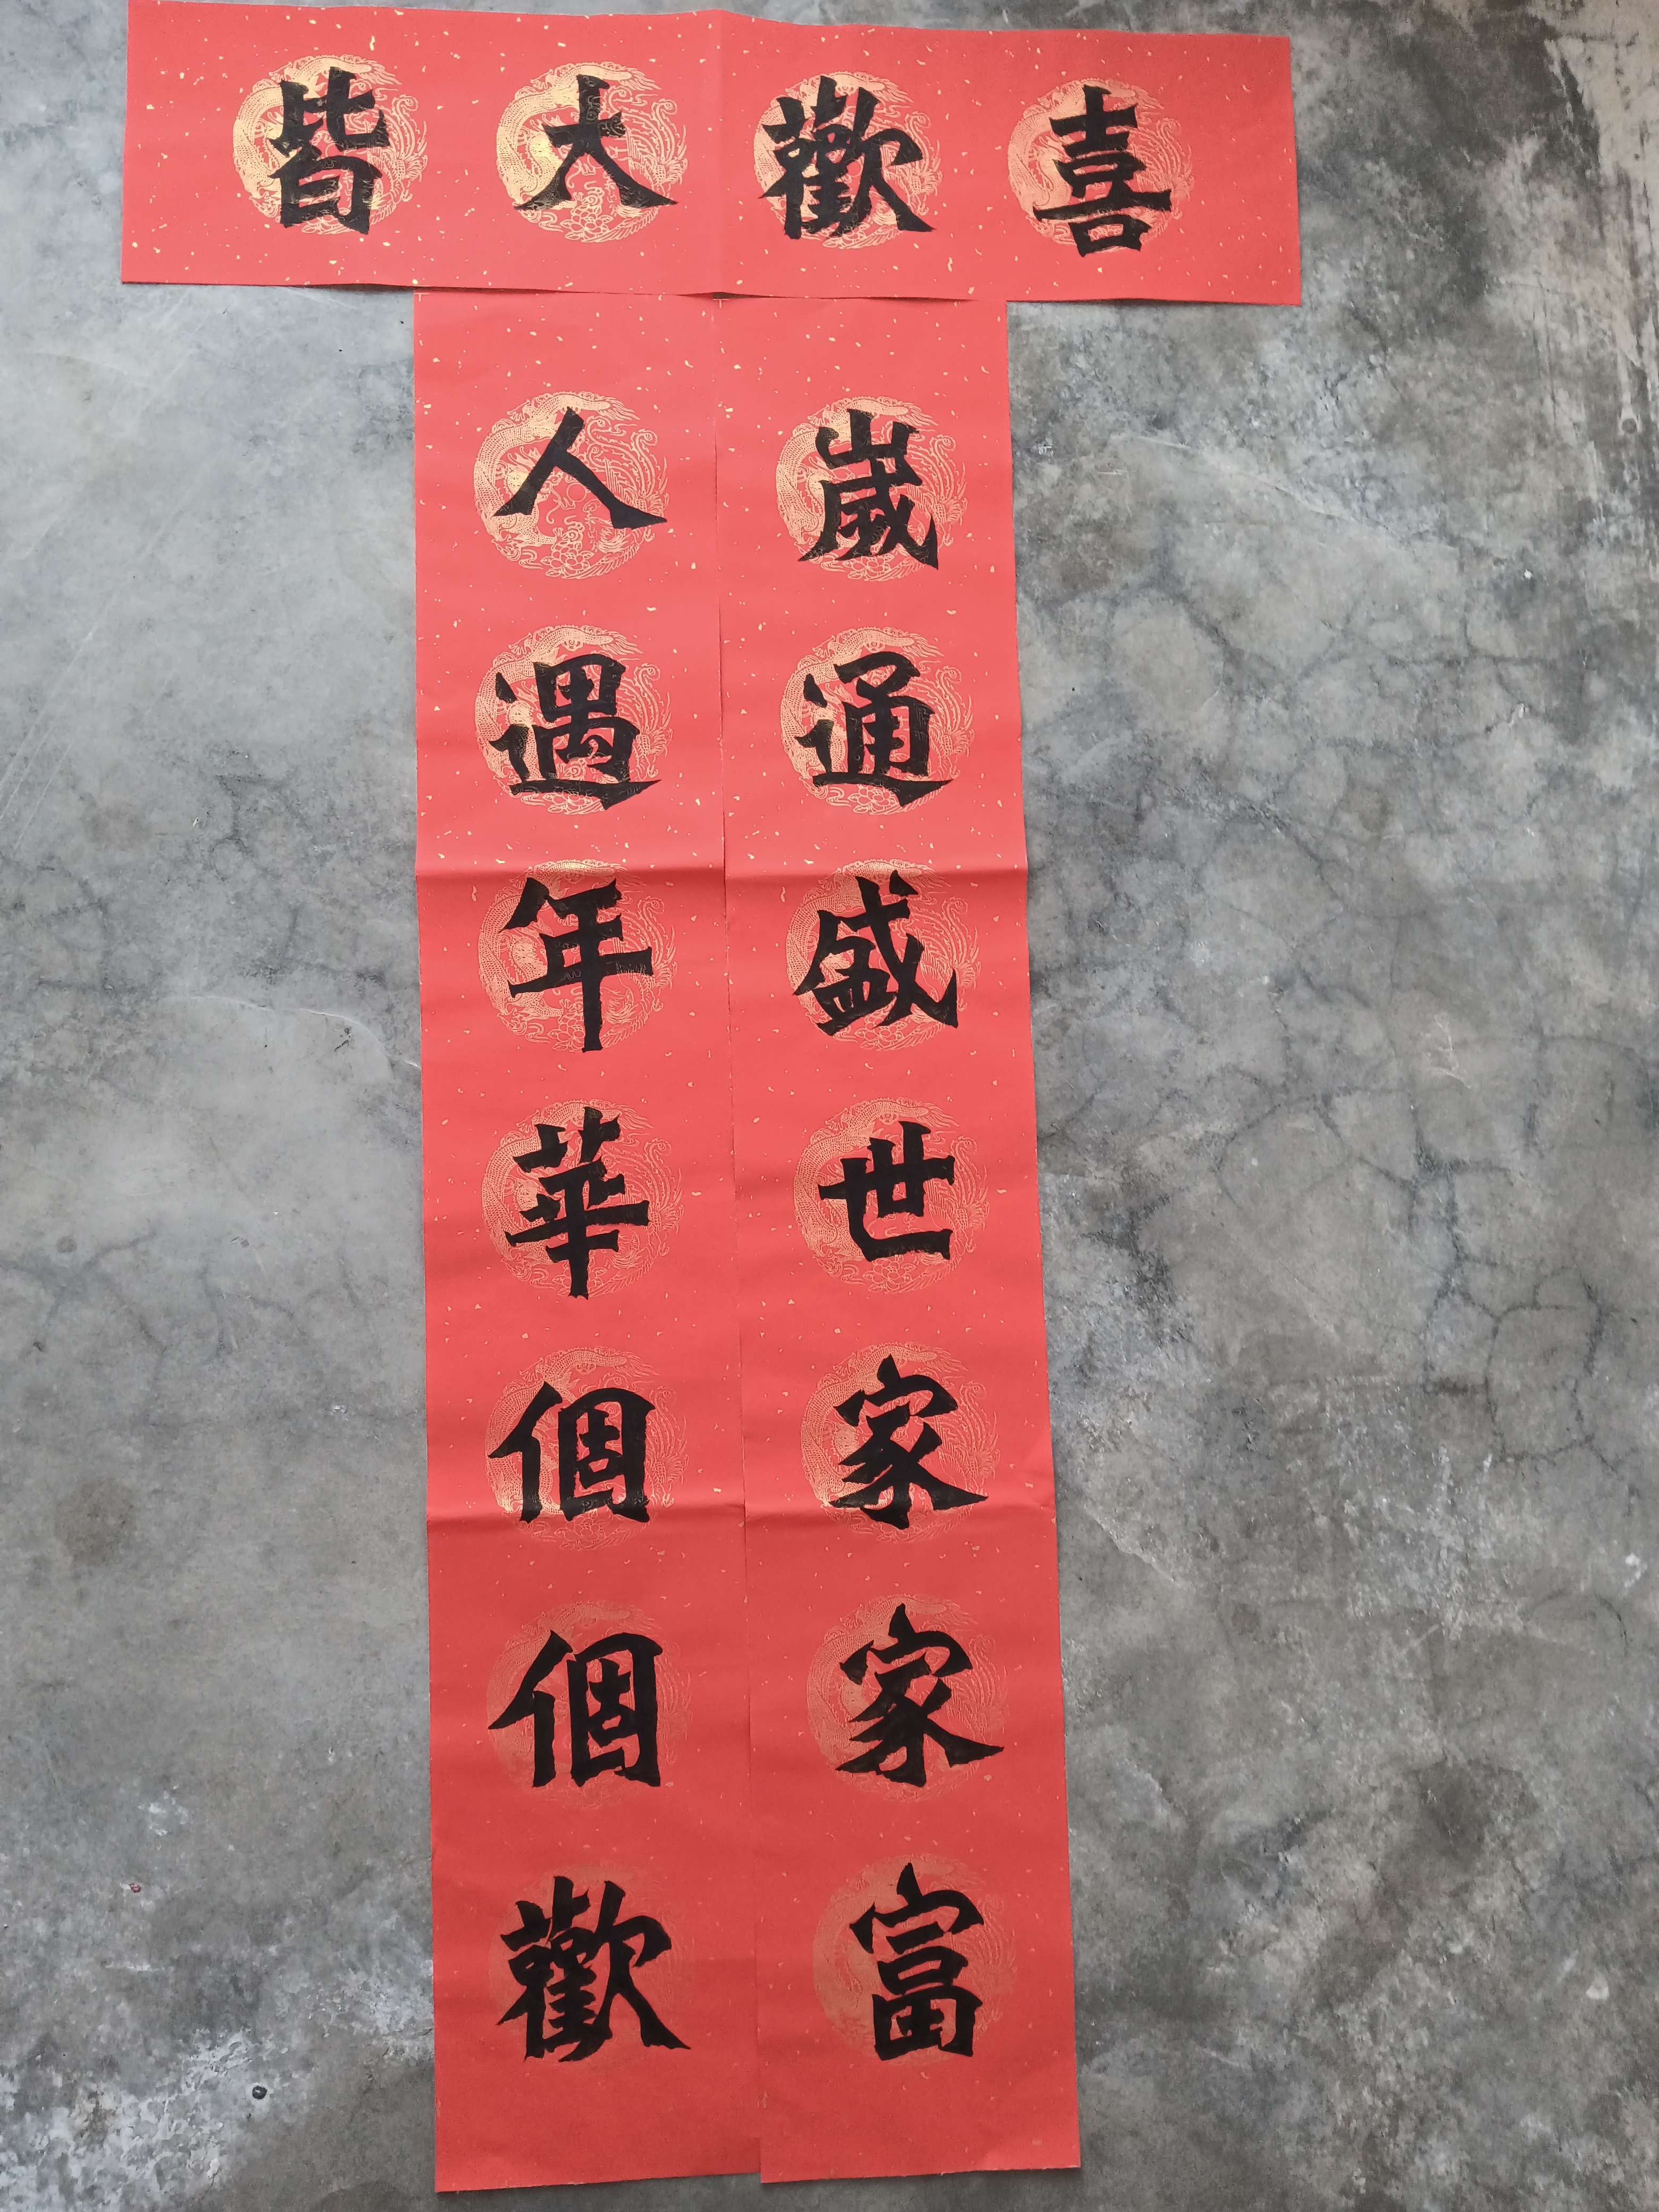 皆大歡喜
歲通盛世家家富
人遇年華個個歡